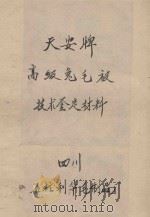 天安牌
高级兔毛被
技术鉴定材料
四川